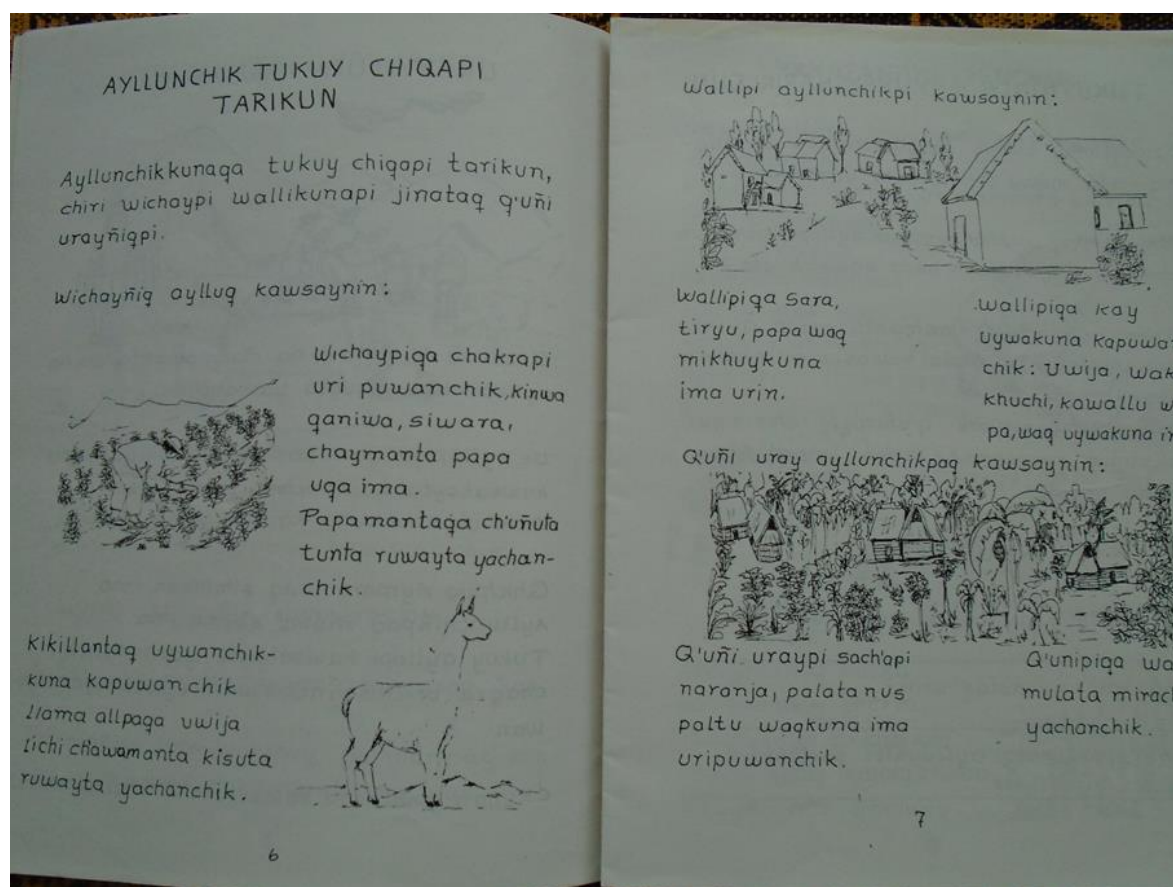 AYLLUNCHIK TUKUY CHIQAPI
TARIKUN
Ayllunchikkunaqa tukuy chiqapi tarikun,
chiri wichaypi wallikunapi jinataq q'uñi
urayñiqpi.
Wichayñiq aylluq kawsaynin:
Wichaypiqa chakrapi
uri puwanchik, kinwa
qaniwa, siwara,
chaymanta papa
uqa ima.
Papamantaqa ch'uñuta
tunta ruwayta yachan-
chik.
Kikillantaq uywanchik-
kuna kapuwanchik
llama allpaqa uwija
lichi ch'awamanta kisuta
ruwayta yachanchik.
6
Wallipi ayllunchikpi kawsaynin:
Wallipiqa sara,
tiryu, papa waq
mikhuykuna
ima urin.
Wallipiqa kay
uywakuna kapuwa
chik: Uwija, wak
khuchi, kawallu w
pa, waq uywakuna i
Q'uñi uray ayllunchikpaq kawsaynin:
Q'uñi uraypi sach'api
naranja, palatanus
paltu waqkuna ima
uripuwanchik.
Q'unipiqa wa
mulata mirac
yachanchik.
7